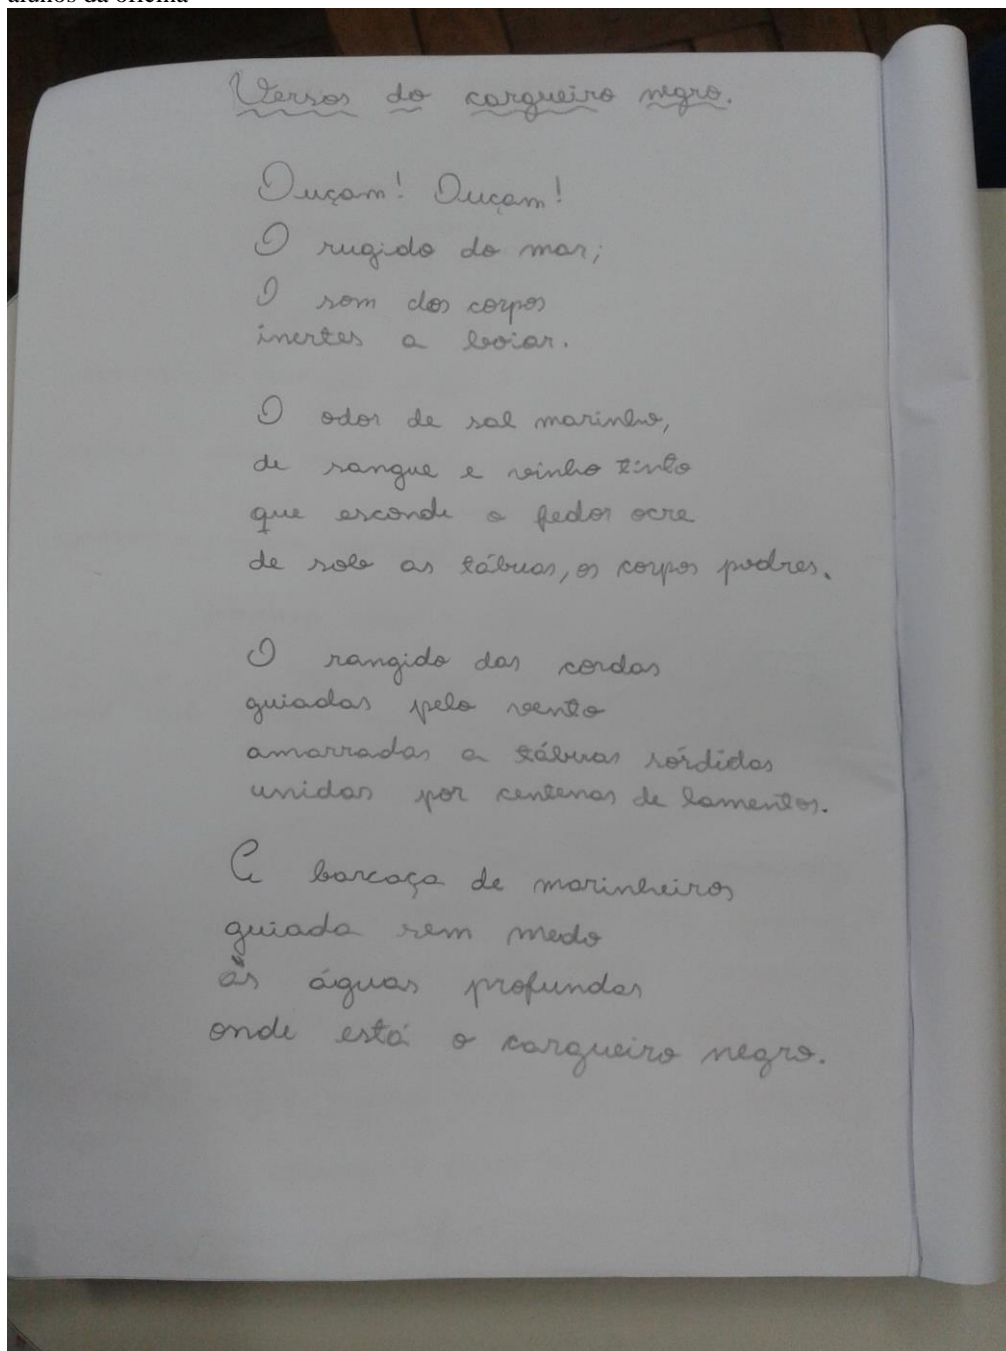 alunos da oficina
Versos do cargueiro negro.
Ouçam! Ouçam!
O rugido do mar;
O som dos corpos
inertes a boiar.
O odor de sal marinho,
de sangue e vinho tinto
que esconde o fedor ocre
de sob as tábuas, os corpos podres.
O rangido das cordas
guiadas pelo vento
amarradas a tábuas sórdidas
unidas por centenas de lamentos.
A barcaça de marinheiros
guiada sem medo
às águas profundas
onde está o cargueiro negro.